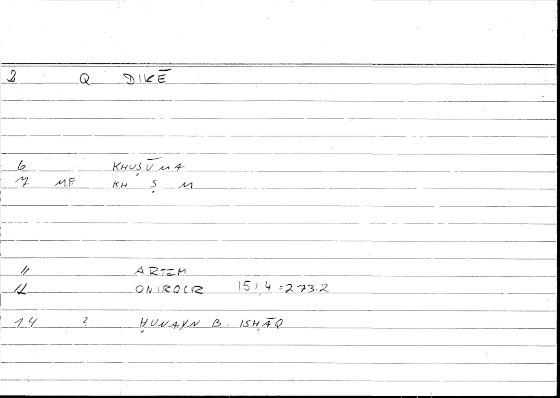 3 Q DIKĒ
6 KHUṢŪMA
7 MF KH Ṣ M
11 ARTEM
12 ONIROCR 151,4 = 273.2
14 ? ḤUNAYN B. ISḤĀQ